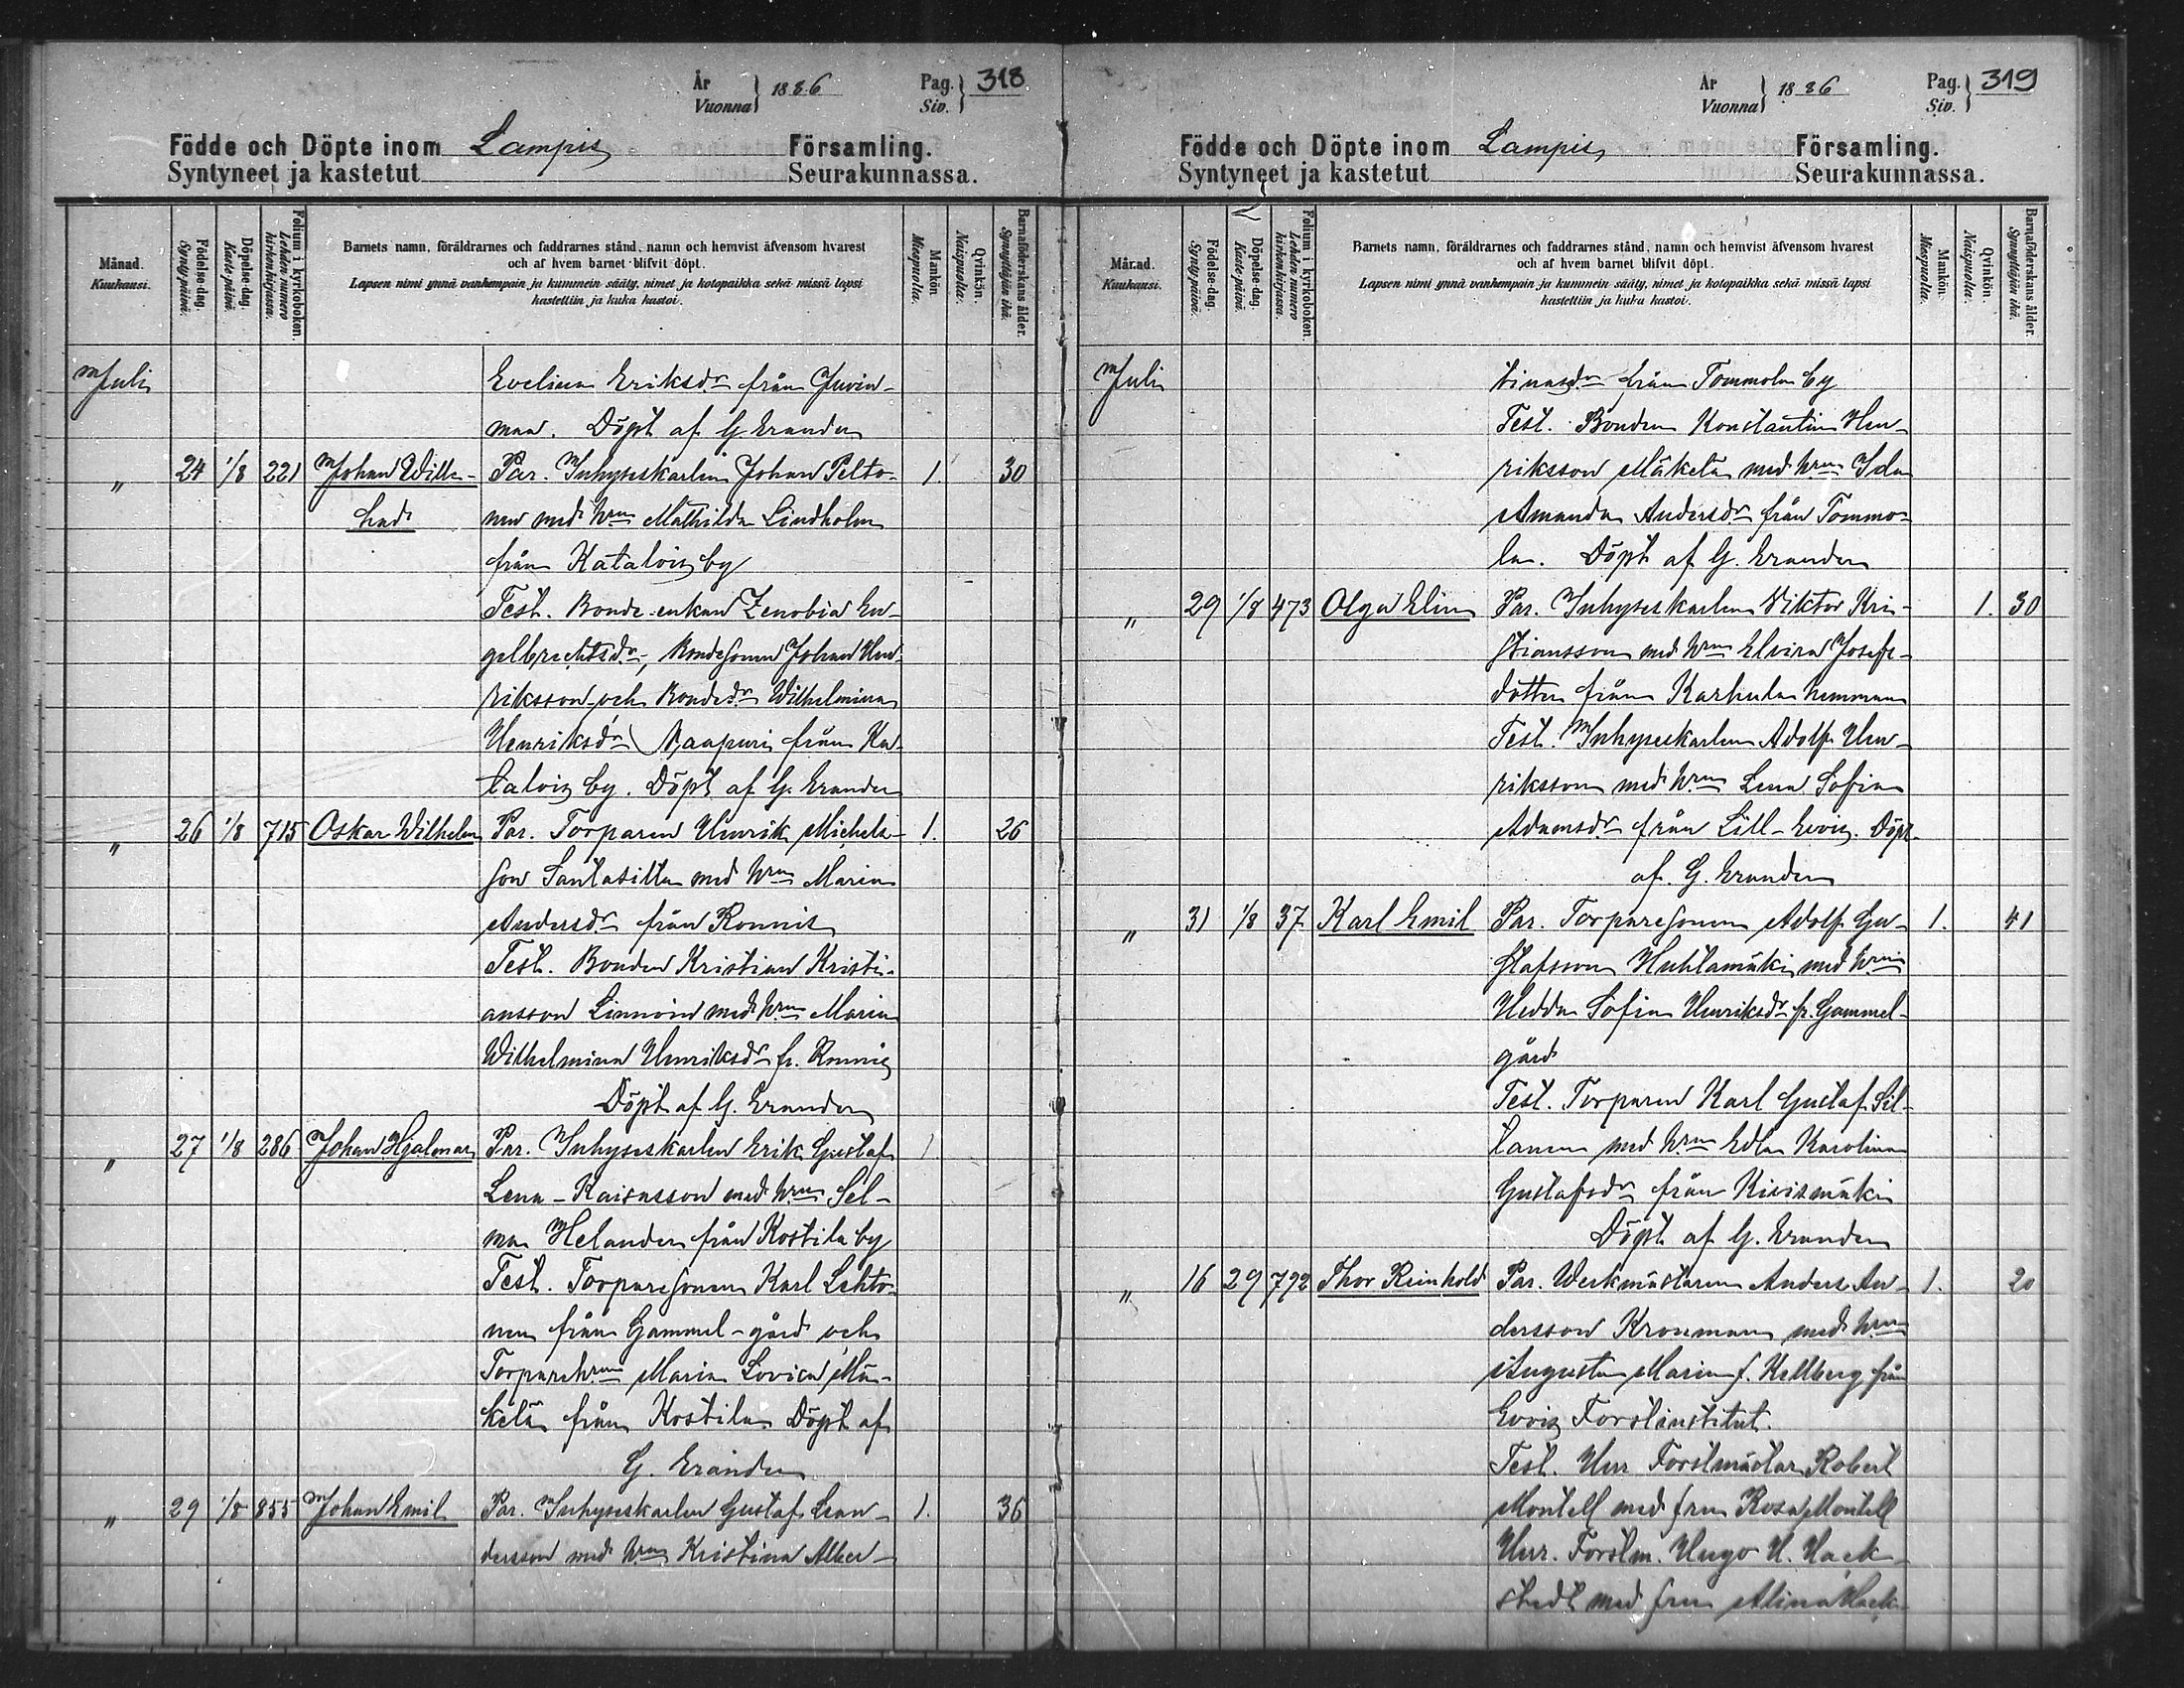 År
Vuonna } 1886
Pag.
Siv. } 318
Födde och Döpte inom Lampis Församling.
Syntyneet ja kastetut Seurakunnassa.
Månad.
Kuukausi.
Födelse-dag.
Synty-päivä.
Döpelse-dag.
Kaste-päivä.
Folium i kyrkoboken.
Lehden numero kirkonkirjassa.
Barnets namn, föräldrarnes och faddrarnes stånd, namn och hemvist äfvensom hvarest
och af hvem barnet blifvit döpt.
Lapsen nimi ynnä vanhempain ja kummein sääty, nimet ja kotopaikka sekä missä lapsi
kastettiin ja kuka kastoi.
Mankön.
Miespuolta.
Qvinkön.
Naispuolta.
Barnaföderskans ålder.
Synnyttäjän ikä.
Juli Evelina Eriksdr från Juvin-
maa. Döpt af G. Erander
" 24 1/8 221 Johan Wille- Par. Inhyseskarlen Johan Pelto- 1. 30
had nen med hrun Mathilda Lindholm
från Katalois by
Test. Bonde-enkan Zenobia En-
gelbrechtsdr, Bondesonen Johan Hen-
riksson och Bondedr Wilhelmina
Henriksdr Naapuri från Ka-
talois by. Döpt af G. Erander
" 26 1/8 715 Oskar Wilhelm Par. Torparen Henrik Michels- 1. 26
son Santasilta med hrun Maria
Andersdr från Ronnis
Test. Bonden Kristian Kristi-
ansson med hrun Maria
Wilhelmina Henriksdr fr. Ronnis
Döpt af G. Erander
" 27 1/8 286 Johan Hjalmar Par. Inhyseskarlen Erik Gustaf 1
Lena-Kaisasson med hrun Sel-
ma Helander från Kostila by
Test. Torparesonen Karl Lehto-
nen från Gammel-gård och
Torparehrun Maria Lovisa Mä-
kelä från Kostila Döpt af
G. Erander
" 29 1/8 855 Johan Emil Par. Inhyseskarlen Gustaf Lean- 1. 36
dersson med hrun Kristina Alber-
År
Vuonna } 1886
Pag.
Siv. } 319
Födde och Döpte inom Lampis Församling.
Syntyneet ja kastetut Seurakunnassa.
Månad.
Kuukausi.
Födelse-dag.
Synty-päivä.
Döpelse-dag.
Kaste-päivä.
Folium i kyrkoboken.
Lehden numero kirkonkirjassa.
Barnets namn, föräldrarnes och faddrarnes stånd, namn och hemvist äfvensom hvarest
och af hvem barnet blifvit döpt.
Lapsen nimi ynnä vanhempain ja kummein sääty, nimet ja kotopaikka sekä missä lapsi
kastettiin ja kuka kastoi.
Mankön.
Miespuolta.
Qvinkön.
Naispuolta.
Barnaföderskans ålder.
Synnyttäjän ikä.
Juli tinasdr från Tommola by
Test. Bonden Konstantin Hen-
riksson Mäkelä med hrun Ida
Amanda Andersdr från Tommo-
la. Döpt af G. Erander
" 29 1/8 473 Olga Elin Par. Inhyseskarlen Viktor Kri- 1. 30
stiansson med hrun Elvira Josefs-
dotter från Karhula hemman
Test. Inhyseskarlen Adolf Hen-
riksson med hrun Lena Sofia
Adamsdr från Lill-Evois. Döpt
af G. Erander
" 31 1/8 37 Karl Emil Par. Torparesonen Adolf Gu- 1. 41
stafsson Huhtamäki med hrun
Hedda Sofia Henriksdr fr. Gammel-
gård
Test. Torparen Karl Gustaf Sil-
tanen med hrun Edla Karolina
Gustafsdr från Kivismäki
Döpt af G. Erander
" 16 29 792 Thor Reinhold Par. Werkmästaren Anders An- 1. 20
dersson Kronman med hrun
Augusta Maria f. Hellberg från
Evois Forstinstitut.
Test. Herr Forstmästar Robert
Montell med fru Rosa Montell
Herr. Forstm. Hugo H. Hack-
stedt med fru Alina Hack-